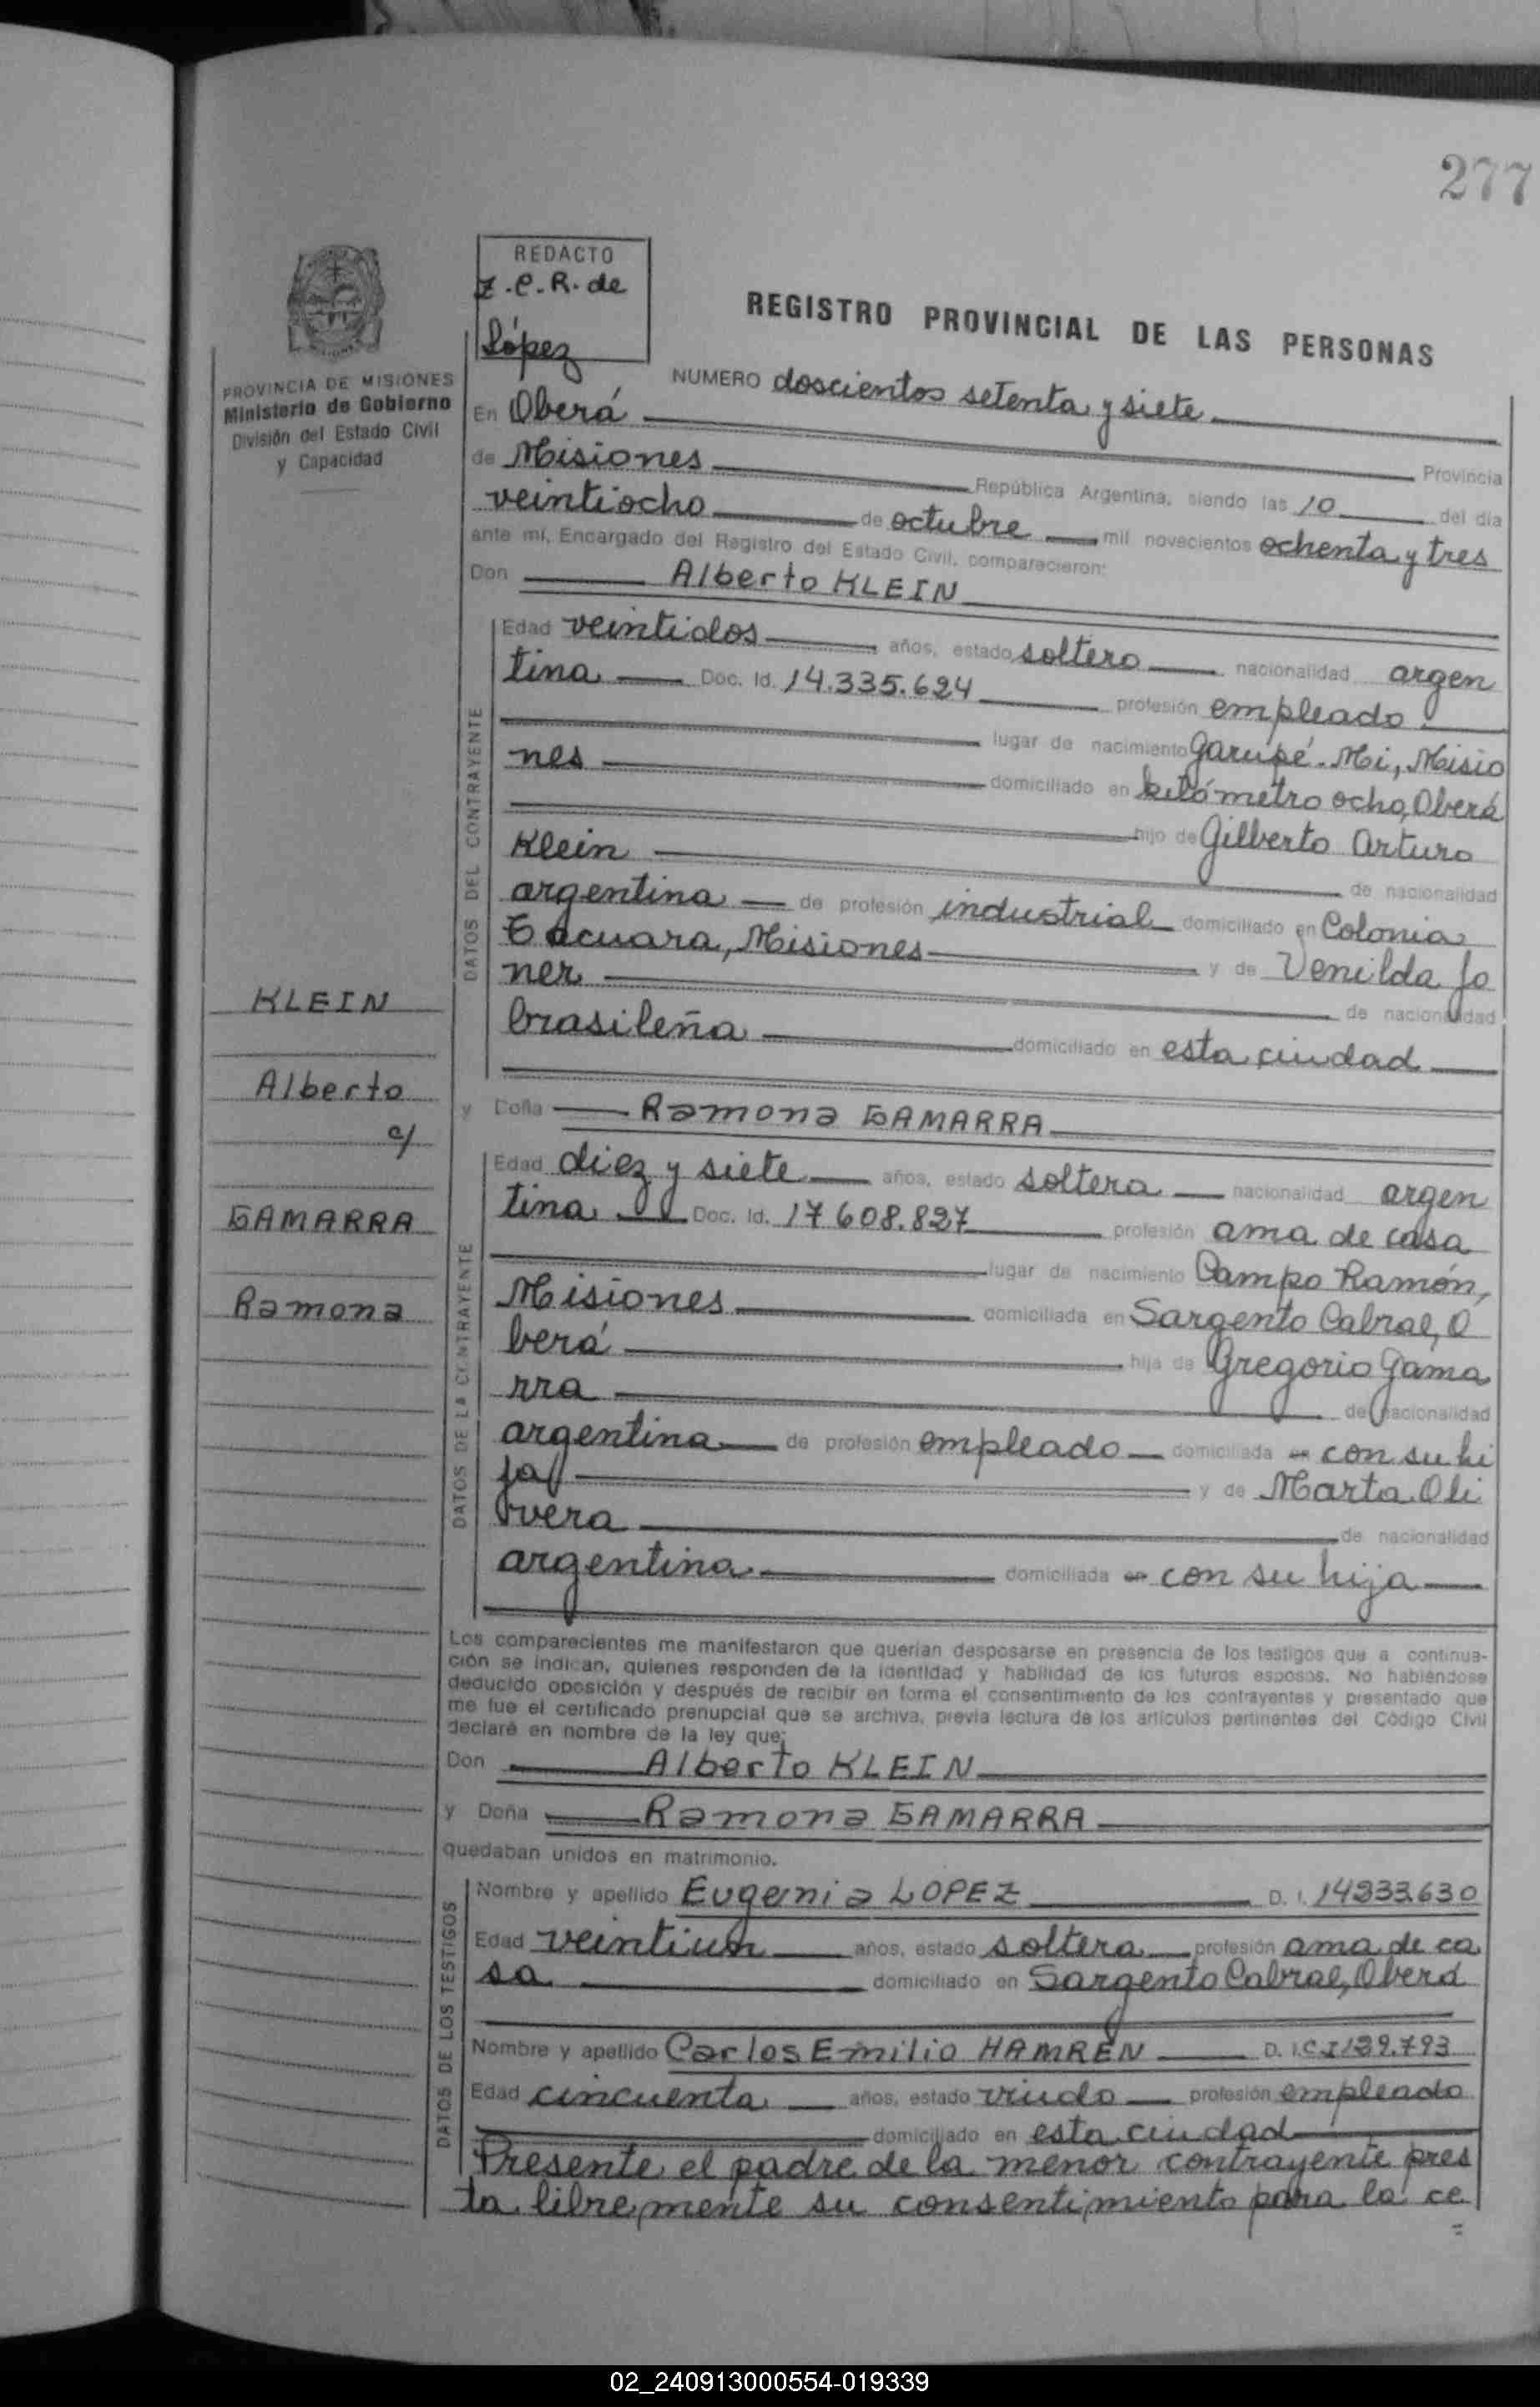 277
REDACTO
Z.C.R. de
López
REGISTRO PROVINCIAL DE LAS PERSONAS
PROVINCIA DE MISIONES
Ministerio de Gobierno
División del Estado Civil
y Capacidad
NUMERO doscientos setenta y siete
En Oberá Provincia
de Misiones República Argentina, siendo las 10 del día
veintiocho de octubre mil novecientos ochenta y tres
ante mí, Encargado del Registro del Estado Civil, comparecieron:
Don Alberto KLEIN
DATOS DEL CONTRAYENTE
Edad veintidos años, estado soltero nacionalidad argen
tina Doc. Id. 14.335.624 profesión empleado
lugar de nacimiento Garupé-Mi, Misio
nes domiciliado en kilómetro ocho, Oberá
hijo de Gilberto Arturo
Klein de nacionalidad
argentina de profesión industrial domiciliado en Colonia
Tacuara, Misiones y de Venilda Jo
ner de nacionalidad
brasileña domiciliado en esta ciudad
KLEIN
Alberto
c/
GAMARRA
Ramona
y Doña Ramona GAMARRA
DATOS DE LA CONTRAYENTE
Edad diez y siete años, estado soltera nacionalidad argen
tina Doc. Id. 17608.827 profesión ama de casa
lugar de nacimiento Campo Ramón,
Misiones domiciliada en Sargento Cabral, O
berá hija de Gregorio Gama
rra de nacionalidad
argentina de profesión empleado domiciliada con su hi
ja y de Marta Oli
vera de nacionalidad
argentina domiciliada con su hija
Los comparecientes me manifestaron que querían desposarse en presencia de los testigos que a continua-
ción se indican, quienes responden de la identidad y habilidad de los futuros esposos. No habiéndose
deducido oposición y después de recibir en forma el consentimiento de los contrayentes y presentado que
me fue el certificado prenupcial que se archiva, previa lectura de los artículos pertinentes del Código Civil
declaré en nombre de la ley que:
Don Alberto KLEIN
y Doña Ramona GAMARRA
quedaban unidos en matrimonio.
DATOS DE LOS TESTIGOS
Nombre y apellido Eugenia LOPEZ D. I. 14333.630
Edad veintiun años, estado soltera profesión ama de ca
sa domiciliado en Sargento Cabral, Oberá
Nombre y apellido Carlos Emilio HAMREN D. I. C.I 139.793
Edad cincuenta años, estado viudo profesión empleado
domiciliado en esta ciudad
Presente el padre de la menor contrayente pres
ta libremente su consentimiento para la ce
=
02_240913000554-019339